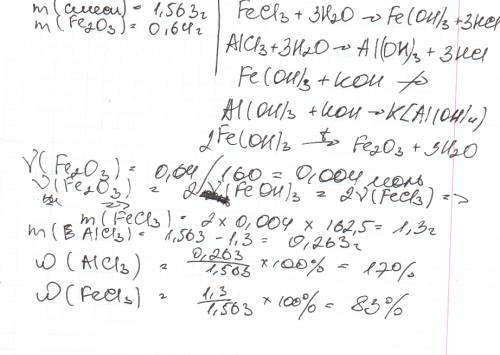 m(смеси) = 1,563г
m(Fe₂O₃) = 0,64г
FeCl₃ + 3H₂O → Fe(OH)₃ + 3HCl
AlCl₃ + 3H₂O → Al(OH)₃ + 3HCl
Fe(OH)₃ + KOH ↛
Al(OH)₃ + KOH → K[Al(OH)₄]
2Fe(OH)₃ →t Fe₂O₃ + 3H₂O
ν(Fe₂O₃) = 0,64/160 = 0,004 моль
ν(Fe₂O₃) = 2ν(FeOH)₃ = 2ν(FeCl₃) =>
=> m(FeCl₃) = 2 × 0,004 × 162,5 = 1,3г
m(AlCl₃) = 1,563 - 1,3 = 0,263г
ω(AlCl₃) = 0,263/1,563 × 100% = 17%
ω(FeCl₃) = 1,3/1,563 × 100% = 83%